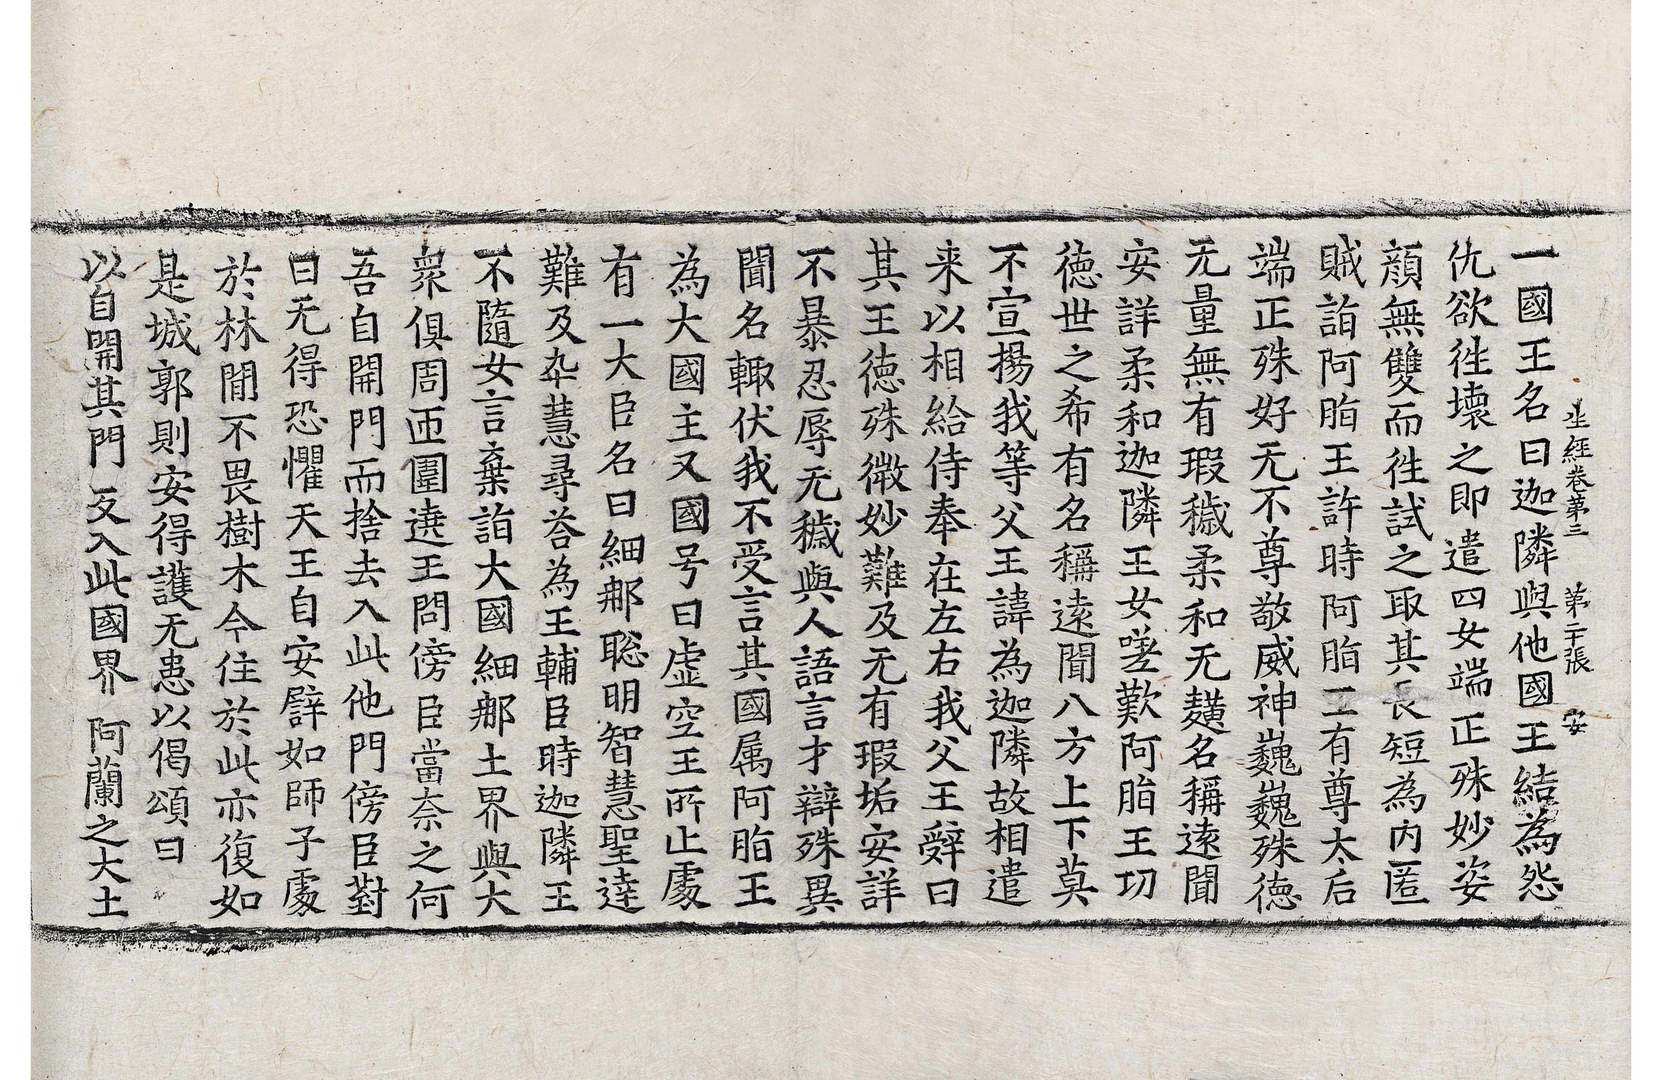 生經卷第三 第二十張 安
一國王名曰迦隣與他國王結為怨
仇欲往壞之即遣四女端正殊妙姿
顔無雙而往試之取其長短為内匿
賊詣阿脂王許時阿脂王有尊太后
端正殊好无不尊敬威神巍巍殊德
无量無有瑕穢柔和无䴡名稱遠聞
安詳柔和迦隣王女嗟歎阿脂王功
德世之希有名稱遠聞八方上下莫
不宣揚我等父王諱為迦隣故相遣
来以相給侍奉在左右我父王辭曰
其王德殊微妙難及无有瑕垢安詳
不暴忍辱无穢與人語言才辯殊異
聞名輙伏我不受言其國属阿脂王
為大國主又國号曰虛空王所止處
有一大臣名曰細那聡明智慧聖達
難及卒慧尋荅為王輔臣時迦隣王
不隨女言棄詣大國細那土界與大
衆俱周匝圍遶王問傍臣當奈之何
吾自開門而捨去入此他門傍臣對
曰无得恐懼天王自安譬如師子處
於林間不畏樹木今住於此亦復如
是城郭則安得護无患以偈頌曰
以自開其門 及入此國界 阿蘭之大土